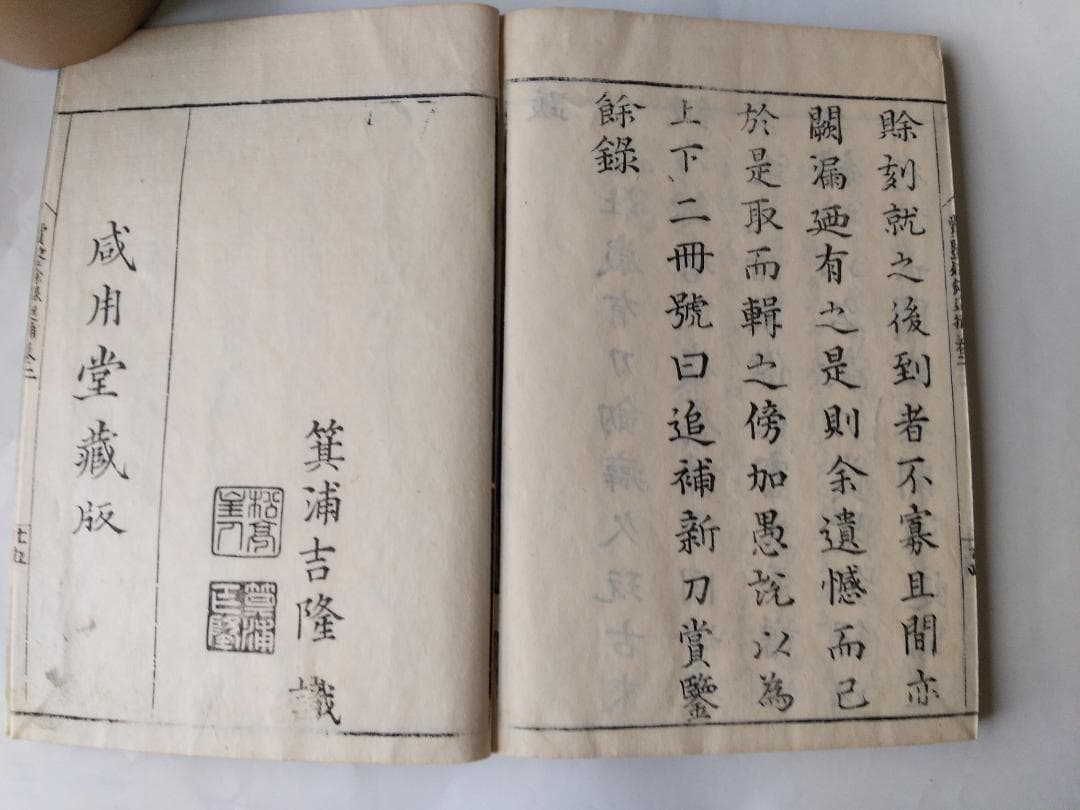 賖刻就之後到者不寡且間亦
闕漏廼有之是則余遺憾而已
於是取而輯之傍加愚說以為
上下二冊號曰追補新刀賞鑒
餘錄
箕浦吉隆識
咸用堂藏版